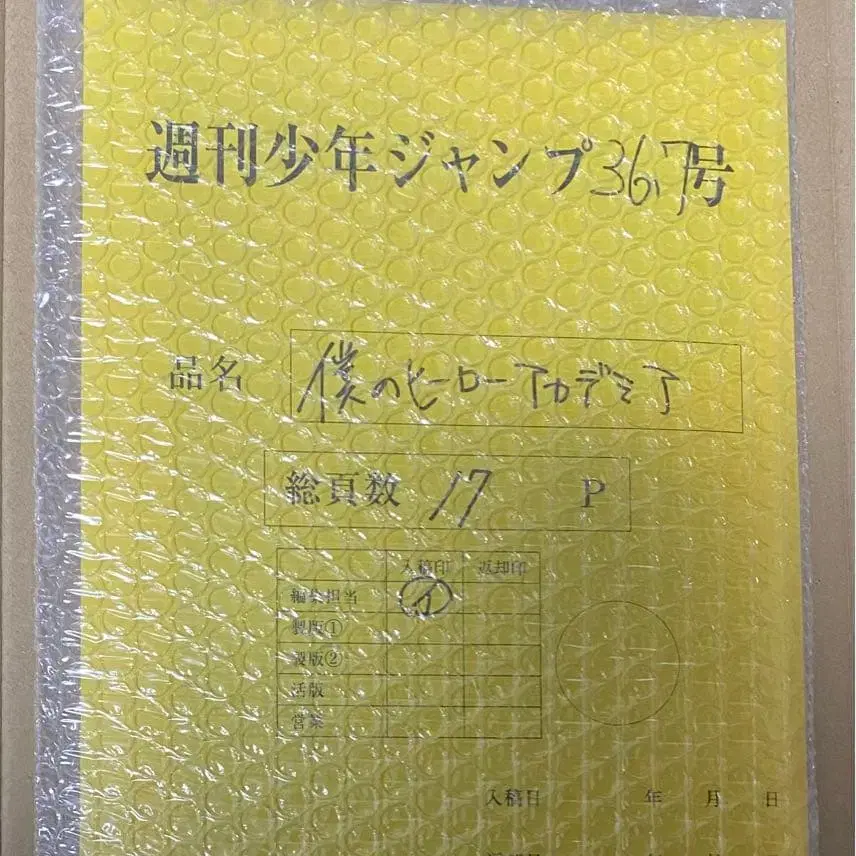 週刊少年ジャンプ36.7号
品名 僕のヒーローアカデミア
総頁数 17 P
入稿印 返却印
編集担当
製版①
製版②
活版
営業
入稿日 年 月 日